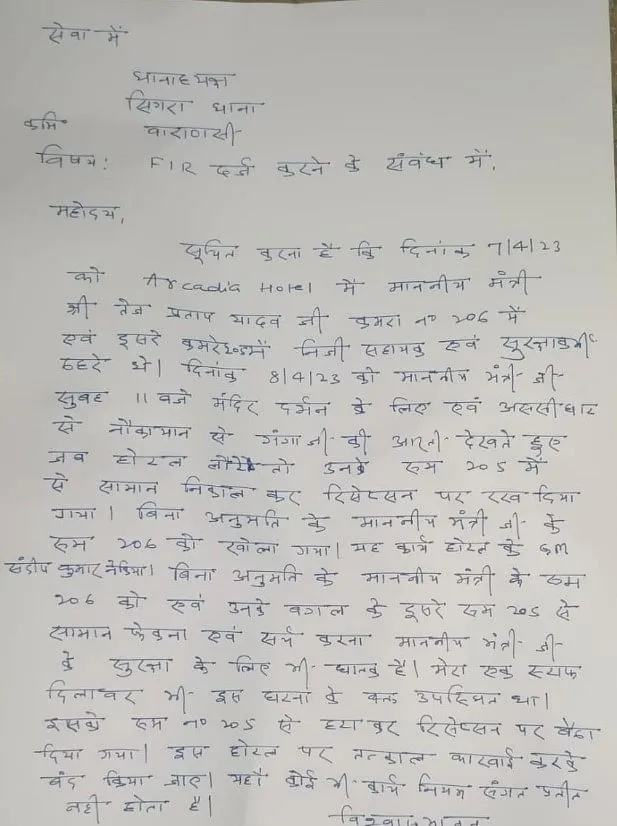 सेवा में
थानाध्यक्ष
सिगरा थाना
कमि॰ वाराणसी
विषय: FIR दर्ज करने के संबंध में.
महोदय,
सूचित करना है कि दिनांक 7/4/23
को Arcadia Hotel में माननीय मंत्री
श्री तेज प्रताप यादव जी कमरा नं॰ 206 में
एवं दुसरे कमरे 205 में निजी सहायक एवं सुरक्षाकर्मी
ठहरे थे। दिनांक 8/4/23 को माननीय मंत्री जी
सुबह 11 बजे मंदिर दर्शन के लिए एवं अससी घाट
से नौकायान से गंगा जी की आरती देखते हुए
जब होटल लौटे तो उनके रूम 205 में
से सामान निकाल कर रिसेप्सन पर रख दिया
गया। बिना अनुमति के माननीय मंत्री जी के
रूम 206 को खोला गया। यह कार्य होटल के GM
संदीप कुमार बिना अनुमति के माननीय मंत्री के रूम
206 को एवं उनके बगल के दुसरे रूम 205 से
सामान फेकना एवं सर्च करना माननीय मंत्री जी
के सुरक्षा के लिए भी घातक है। मेरा एक स्टाफ
दिलावर भी इस घटना के वक्त उपस्थित था।
इसको रूम नं॰ 205 से हटाकर रिसेप्सन पर बैठा
दिया गया। इस होटल पर तत्काल कारवाई करके
बंद किया जाए। यहाँ कोई भी कार्य नियम संगत प्रतीत
नही होता है।